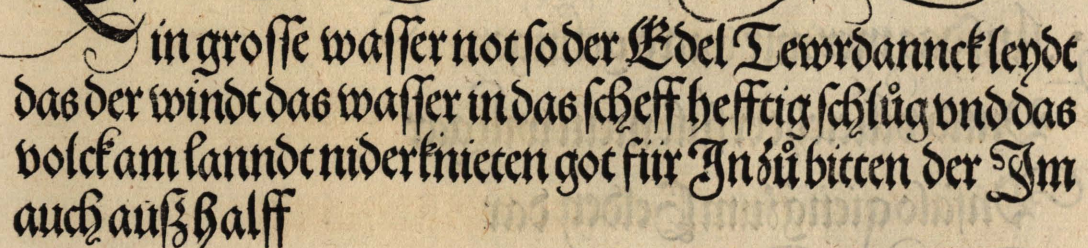 Ein grosse wasser not so der Edel Tewrdannck leydt
das der windt das wasser in das scheff hefftig schlůg vnd das
volck am lanndt niderknieten got für In zů bitten der Im
auch außhalff